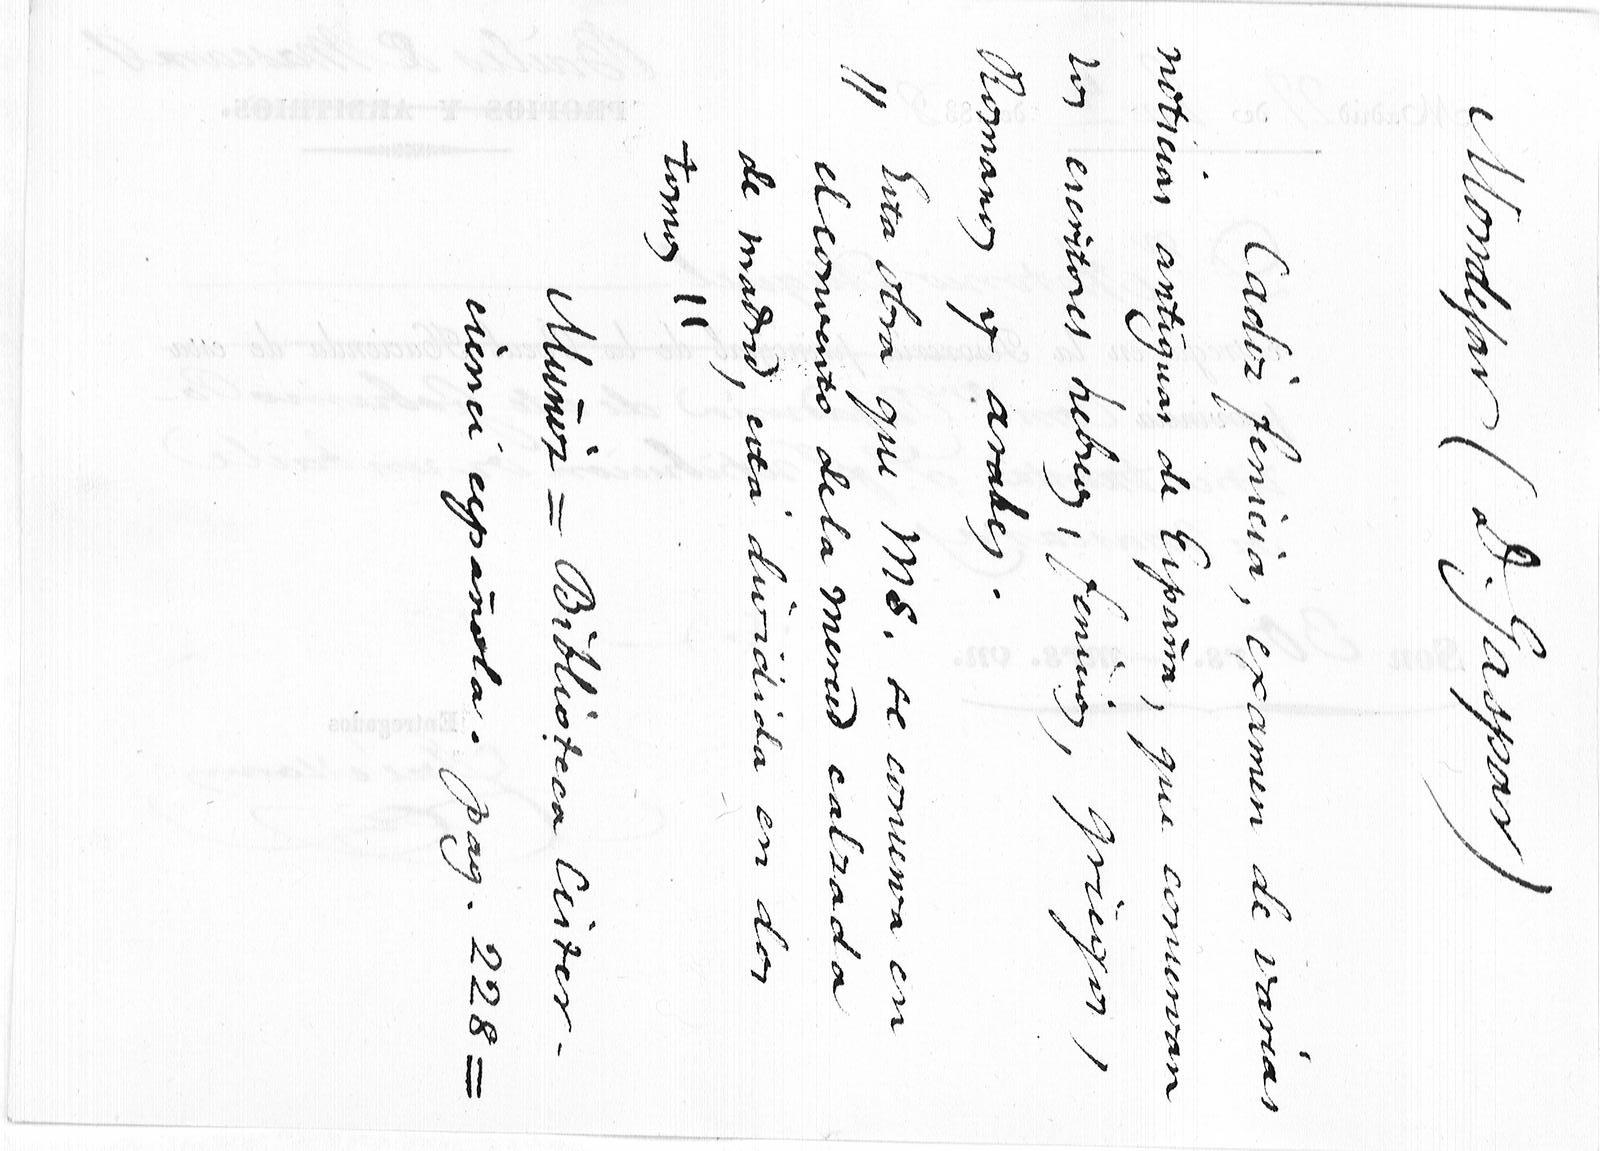 Mondejar (D. Gaspar)
Cadiz fenicia, examen de varias
noticias antiguas de España, que conservan
los escritores hebreos, fenicios, griegos,
Romanos y arabes.
" Esta obra que MS. se conserva en
el convento de la merced calzada
de madrid, está dividida en dos
tomos "
Muñiz = Biblioteca Cister-
ciense española. pag. 228 =
PROPIOS Y ARBITRIOS.
Madrid 27 de de 183
Entregados